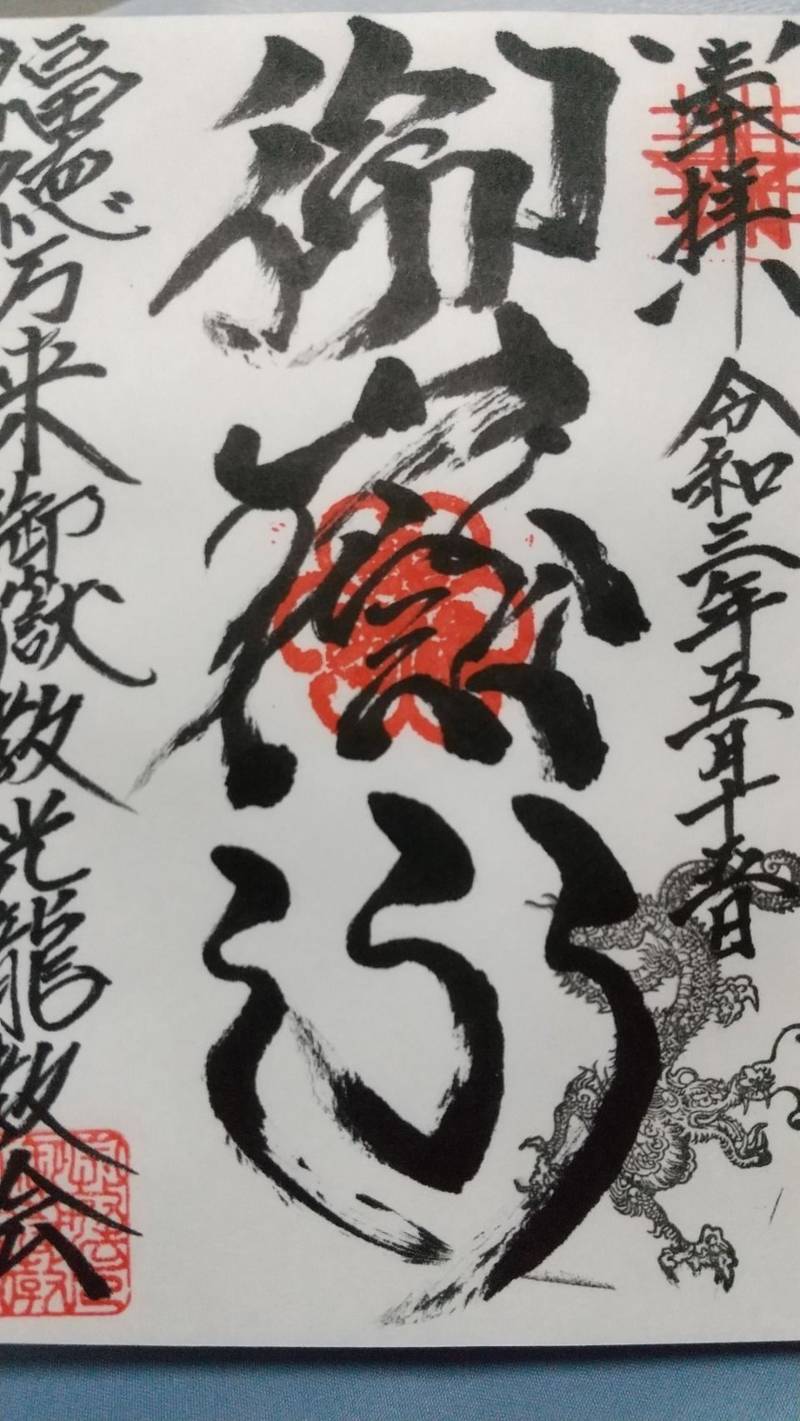 奉拝 令和三年五月十五日
御嶽山
福徳万来 御嶽教光龍教会